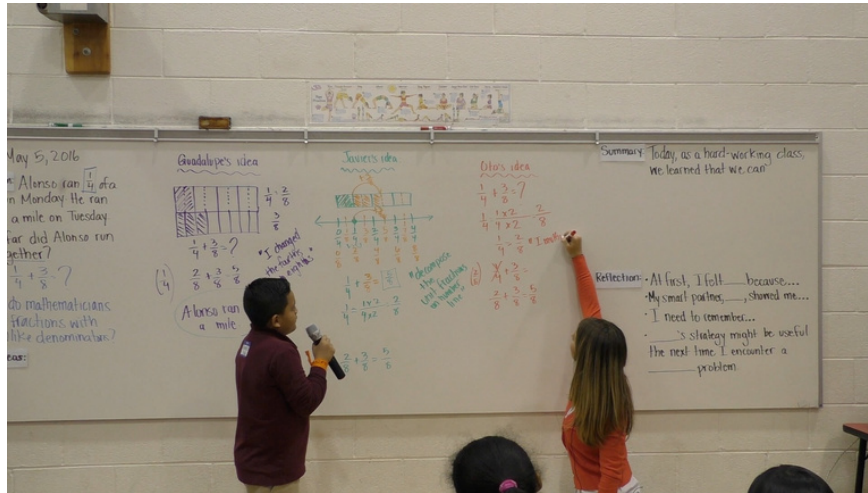 May 5, 2016
Alonso ran 1/4 of a
n Monday. He ran
a mile on Tuesday.
far did Alonso run
gether?
1/4 + 3/8 = ?
do mathematicians
fractions with
like denominators?
Guadalupe's idea
1/4 = 2/8
3/8
1/4 + 3/8 = ?
(1/4) 2/8 + 3/8 = 5/8
"I changed
the fourths
Alonso ran
a mile
Javier's idea
1/4 + 3/8 =
1/4 = 1x2/4x2 = 2/8
2/8 + 3/8 = 5/8
"decompose
the
unit fractions
on number
line"
1/4 + 3/8 = ?
1/4 1x2/4x2 2/8
1/4 = 2/8
"I
+ 3/8 =
2/8 + 3/8 = 5/8
Summary:
Today, as a hard-working class,
we learned that we can
Reflection:
• At first, I felt ___ because...
• My smart partner, ___, showed me...
• I need to remember...
• ___'s strategy might be useful
the next time I encounter a
___ problem.